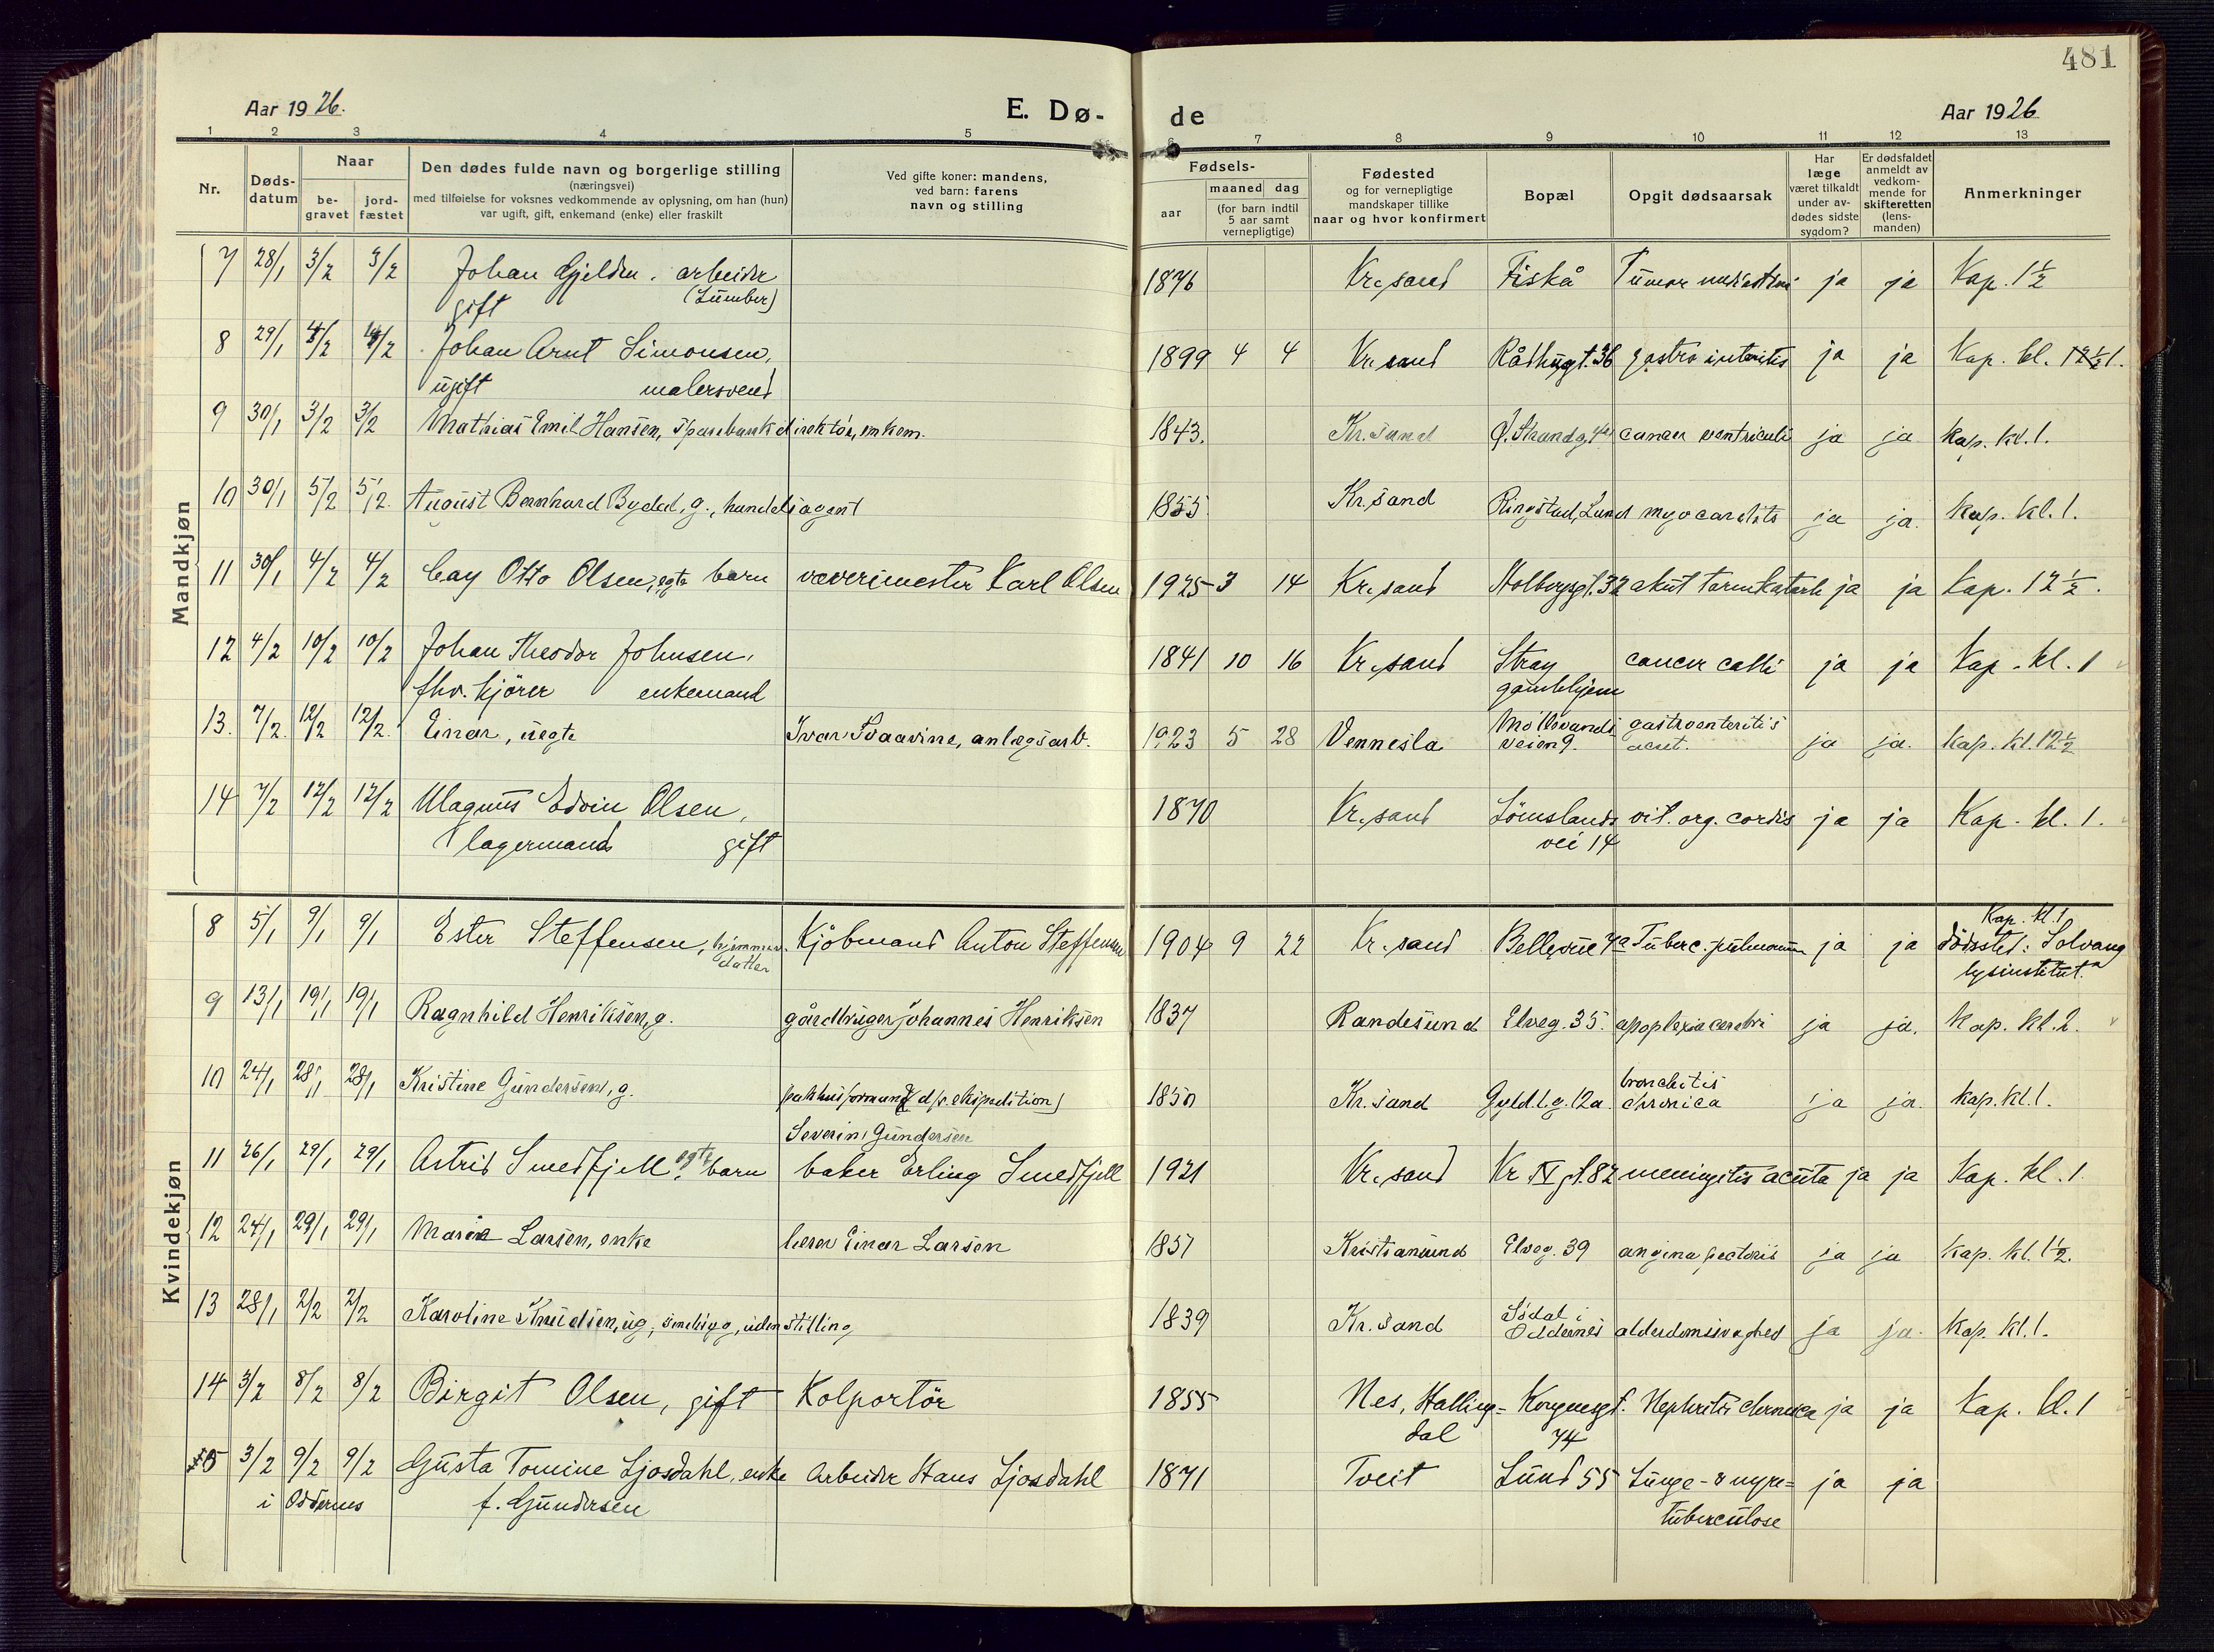 481
Aar 1926.
E. Dø-
de
Aar 1926
1 2 3 4 5 6 7 8 9 10 11 12 13
Nr.
Døds-
datum
Naar
be-
gravet
jord-
fæstet
Den dødes fulde navn og borgerlige stilling
(næringsvei)
med tilføielse for voksnes vedkommende av oplysning, om han (hun)
var ugift, gift, enkemand (enke) eller fraskilt
Ved gifte koner: mandens,
ved barn: farens
navn og stilling
Fødsels-
aar
maaned dag
(for barn indtil
5 aar samt
vernepligtige)
Fødested
og for vernepligtige
mandskaper tillike
naar og hvor konfirmert
Bopæl
Opgit dødsaarsak
Har
læge
været tilkaldt
under av-
dødes sidste
sygdom?
Er dødsfaldet
anmeldt av
vedkom-
mende for
skifteretten
(lens-
manden)
Anmerkninger
Mandkjøn
7 28/1 3/2 3/2 Johan Gjelden. arbeider 1876 Kr.sand Fiskå Tumor mediastini ja ja Kap. 1½
gift (Lumber)
8 29/1 4/2 4/2 Johan Arnt Simonsen, 1899 4 4 Kr.sand Rådhusgt. 36 gastro interitis ja ja Kap. kl. 1.
ugift malersvend
9 30/1 3/2 3/2 Mathias Emil Hansen, sparebankdirektør, enkem. 1843. Kr.sand Ø. Strandg. cancer ventriculi ja ja kap. kl. 1.
10 30/1 5/2 5/2. August Bernhard Bydal, g., handelsagent 1855. Kr.sand Ringstad, Lund myocarditis ja ja. kap. kl. 1.
11 30/1 4/2 4/2 Cay Otto Olsen, egte barn væverimester Karl Olsen 1925 3 14 Kr.sand Holbergsgt. 32 akut tarmkatarh ja ja Kap. 12½.
12 4/2 10/2 10/2 Johan Theodor Johnsen, 1841 10 16 Kr.sand Stray cancer colli ja ja Kap. kl. 1
fhv. kjører enkemand gamlehjem
13. 7/2. 12/2 12/2. Einar, uegte Ivar Svaavine, anlægsarb. 1923 5 28 Vennesla Møllevands gastroenteritis ja ja. kap. kl. 12½
veien 9. acut.
14 7/2 12/2 12/2 Magnus Edvin Olsen, 1870 Kr.sand Lömslands vit. org. cordis ja ja Kap. kl. 1.
lagermand gift vei 14
Kvindekjøn
8 5/1 9/1 9/1 Ester Steffensen, hjemmev. Kjöbmand Anton Steffensen 1904 9 22 Kr.sand Bellevue 4a Tuberc. pulmonum ja ja Kap. kl. 1
datter dödssted: Solvang
lysinstitut.
9 13/1 19/1 19/1 Ragnhild Henriksen, g. gårdbruger Johannes Henriksen 1837 Randesund Elveg. 35. apoplexia cerebri ja ja. Kap. kl. 2.
10 24/1 28/1 28/1 Kristine Gundersen, g. pakhusformand d/s. ekspedition) 1850 Kr.sand Gyldl.g. 12a. bronchitis ja ja. kap. kl. 1.
Severin Gundersen chronica
11 26/1 29/1 29/1 Astrid Smedfjell, egte barn baker Erling Smedfjell 1921 Kr.sand Kr IV gt. 82 meningitis acuta ja ja Kap. kl. 1.
12 24/1 29/1 29/1 Maren Larsen, enke lærer Einar Larsen 1857 Kristiansund Elveg. 39 angina pectoris ja ja Kap. kl. 1½.
13 28/1 2/2 2/2 Karoline Knudsen, ug, sindssyg, uden stilling 1839 Kr.sand Sødal i alderdomssvaghed ja ja. Kap. kl. 1.
Oddernes
14 3/2 8/2 8/2 Birgit Olsen, gift Kolportör 1855 Nes, Halling- Kongensgt. Nephritis chronica ja ja Kap. kl. 1
dal 74
15 3/2 9/2 9/2 Gusta Tomine Ljosdahl, enke Arbeider Hans Ljosdahl 1871 Tveit Lund 55 Lunge- & nyre- ja ja
i Oddernes f. Gundersen tuberculose